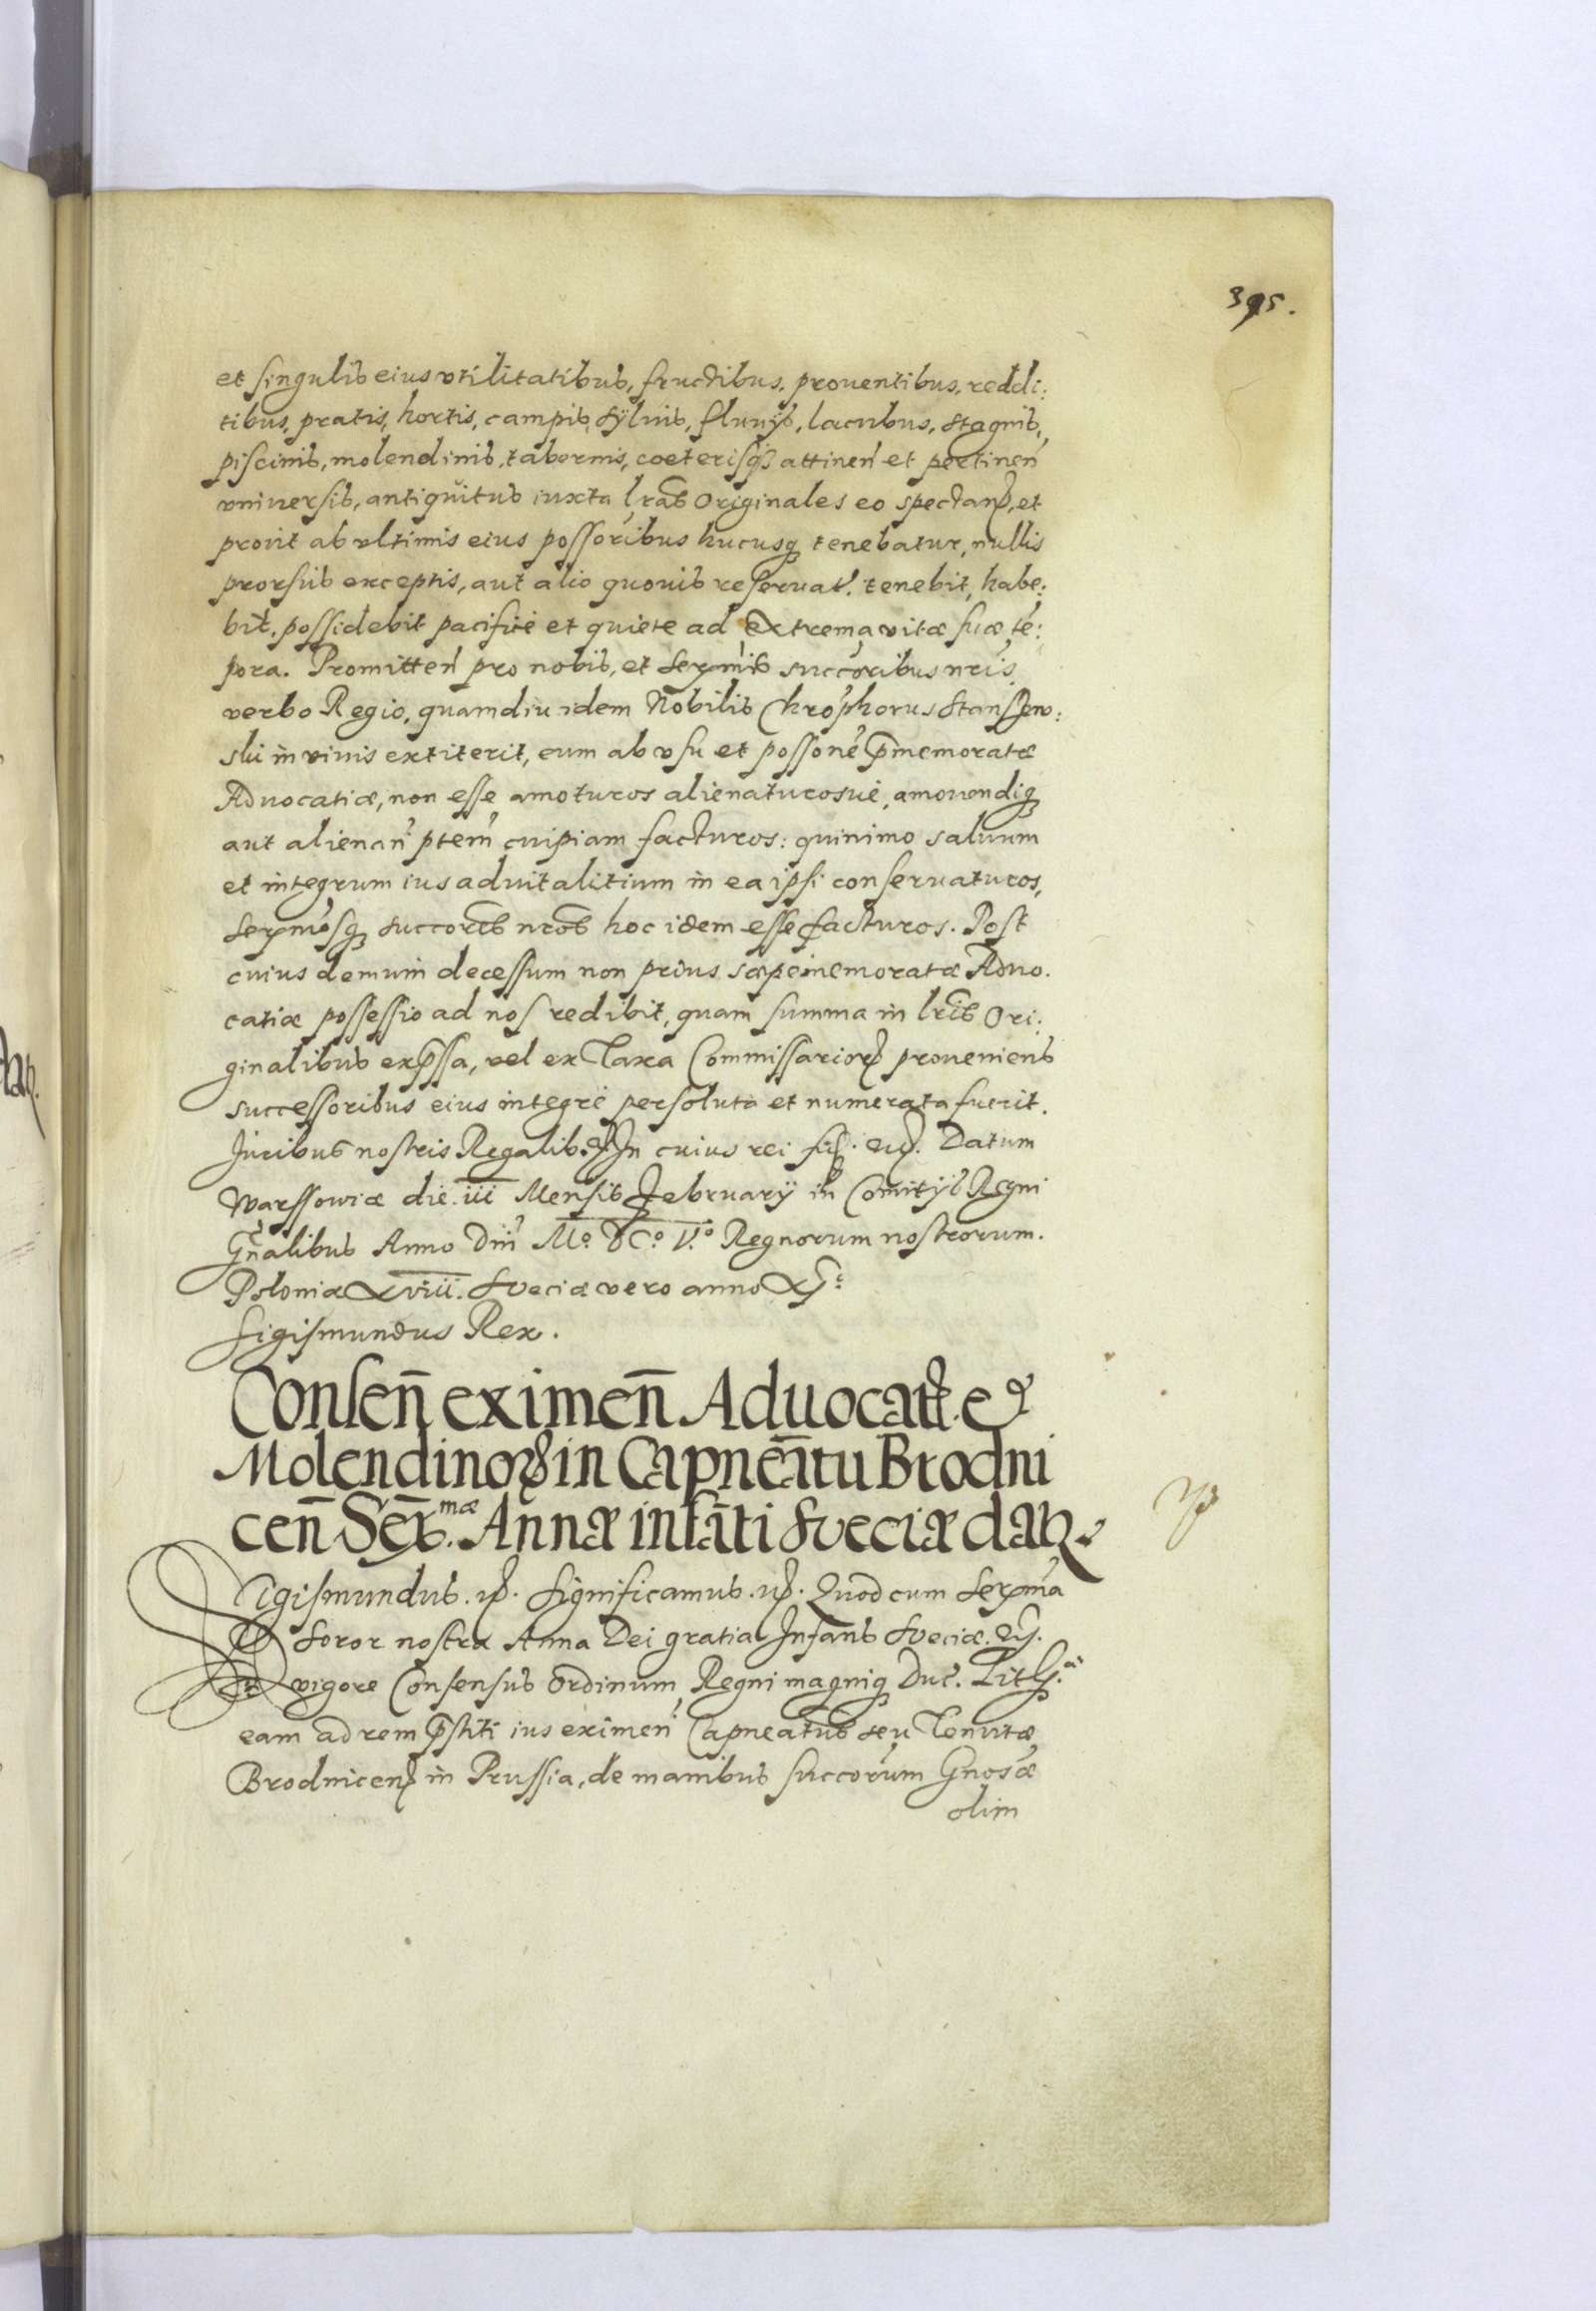 395.
et singulis eius vtilitatibus, fructibus, prouentibus, reddi:
tibus, pratis, hortis, campis, sÿluis, fluuÿs, lacubus, stagnis,
piscinis, molendinis, tabernis, coeterisq; attinen̄ et pertinen̄
vniuersis, antiquitus iuxta lr̃as Originales eo spectan̄, et
prout ab vltimis eius possoribus hucusq; tenebatur, nullis
prorsus exceptis, aut alio quouis reseruat. tenebit, habe:
bit. possidebit pacificè et quiete ad extrema vitæ suæ tẽ:
pora. Promitten̄ pro nobis, et Serm̃is succoribus nris,
verbo Regio, quamdiu idem Nobilis Chrõphorus
ski in viuis extiterit, eum ab vsu et possonẽ p̃memoratæ
Aduocatiæ, non esse amoturos alienaturosuè, amouendiq;
aut alienan̄ ptem̃ cuipiam facturos: quinimo saluum
et integrum ius aduitalitium in ea ipsi conseruaturos,
Serm̃osq; succores nros hoc idem esse facturos. Post
cuius demum decessum non prius sæpememoratæ Aduo.
catiæ possessio ad nos redibit, quam summa in lr̃is Ori:
ginalibus exp̃ssa, vel ex Taxa Commissarior proueniens
successoribus eius integrè persoluta et numerata fuerit.
Juribus nostris Regalib. In cuius rei fid. Datum
Warssowiæ die. iii Mensis Februarÿ in Comitÿs Regni
Gñalibus Anno Dni̇ Mº DCº Vº Regnorum nostrorum.
Poloniæ xviii. Sveciæ vero anno
Sigismundus Rex.
Consen̄ eximen̄ Aduocat. et
Molendinor in Capnẽatu Brodni
cen̄ Ser.mæ Annæ infãti Sveciæ dat.
Sigismundus. Significamus. Quod cum Serm̃a
Soror nostra Anna Dei gratia Infans Sveciæ.
vigore Consensus Ordinum Regni magniq; Duc. Lith.
eam ad rem p̃stiti ius eximen̄ Capneatus seu Tenutæ
Brodnicen̄ in Prussia, de manibus succorum Gnosæ
olim